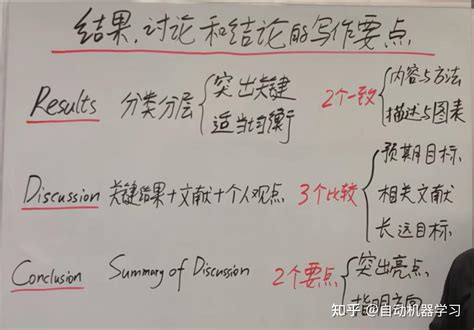 结果、讨论和结论的写作要点
Results 分类分层 { 突出关键 适当均衡 2个一致 { 内容与方法 描述与图表
Discussion 关键结果+文献+个人观点 3个比较 { 预期目标 相关文献 长远目标
Conclusion Summary of Discussion 2个要点 { 突出亮点 指明方向
知乎 @自动机器学习